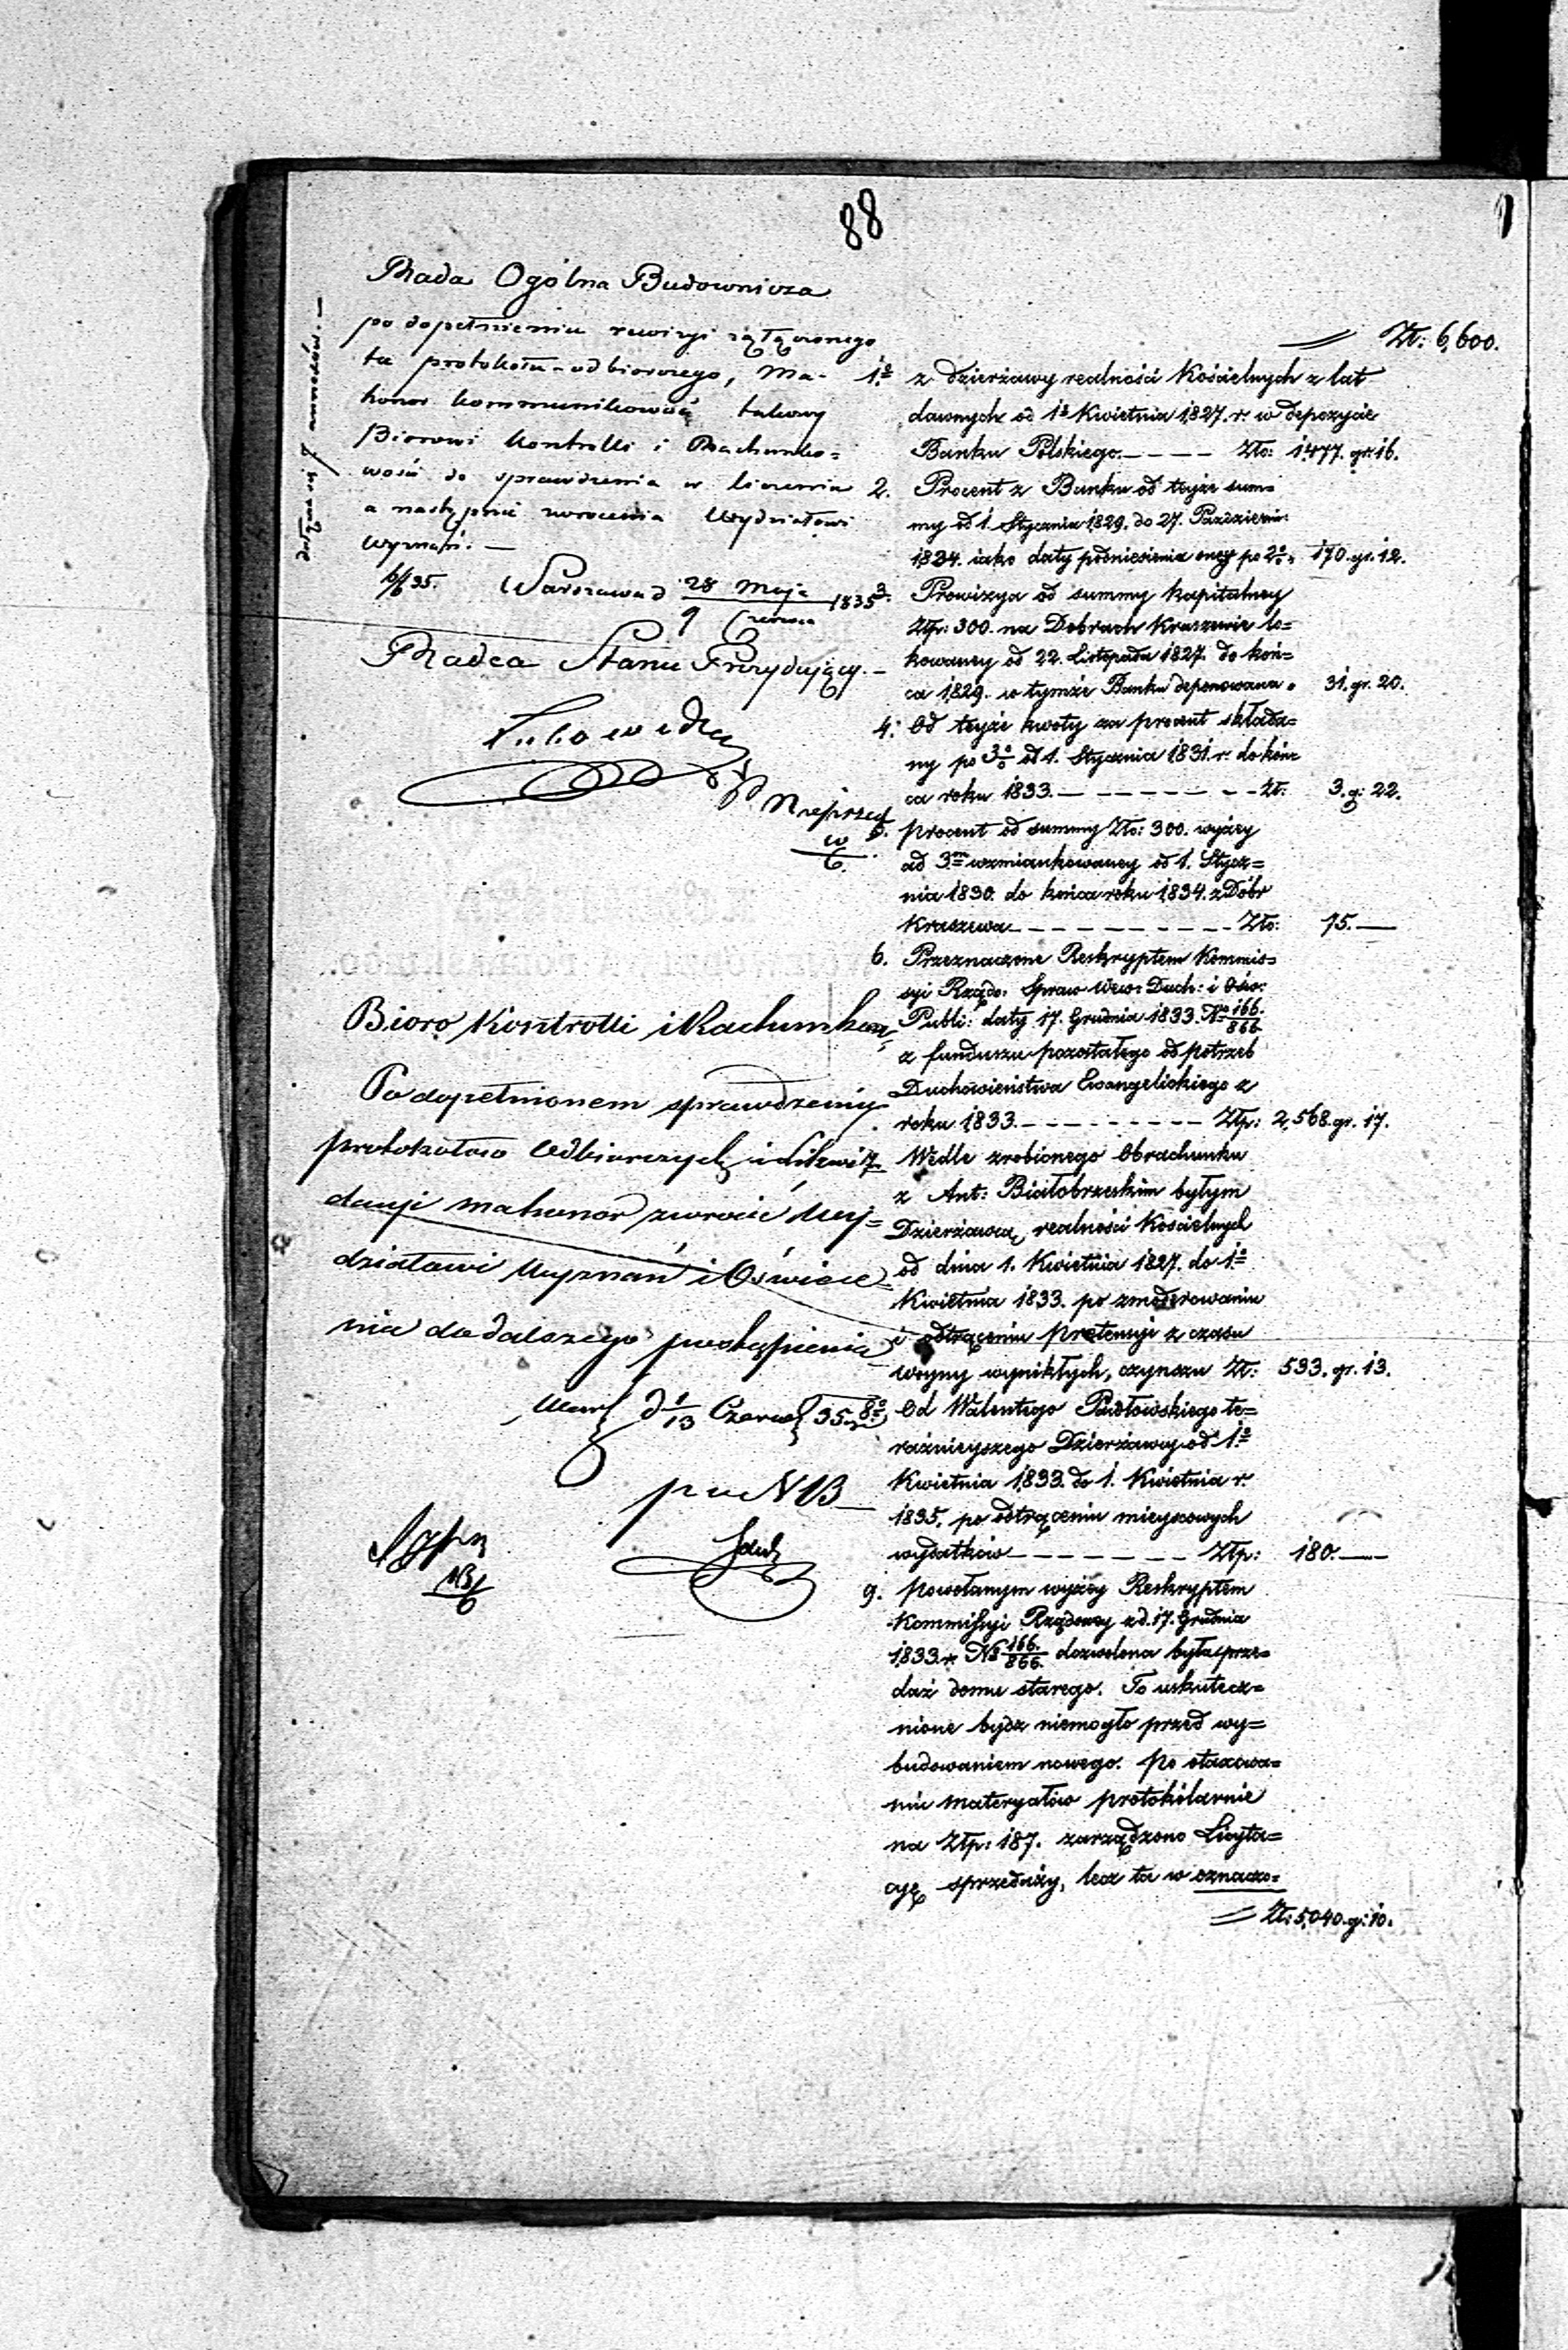 88
Rada Ogólna Budownicza
po dopełnieniu rewizyi załączonego
tu protokołu odbiorczego, Ma
honor kommunikować takowy
Biorowi Kontrolli i Rachunko=
wości do sprawdzenia w liczeniu
a następnie zwrócenia Wydziałowi
Wyznań. —
Warszawa d 28 Maja / 9 Czerwca 1835
Radca Stanu Prezydujący. —
dołącza się 7 annexów. —
Bioro Kontrolli i Rachunkow:
Po dopełnionem sprawdzeniu
protokołów Odbiorczych i Likwi=
dacyi ma honor zwrócić Wy=
działowi Wyznań i Oświece=
nia do dalszego postąpienia
d 1/13 Czerwca 35 r.
Zł: 6,600.
1o z dzierżawy realności Kościelnych z lat
dawnych od 1o Kwietnia 1827. r. w depozycie
Banku Polskiego. — — — — Złp: 1477. gr. 16.
2. Procent z Banku od teyże sum=
my od 1. Stycznia 1829. do 27. Październi:
1834. iako daty podniesienia oney po 2% 170. gr. 12.
3. Prowizya od summy kapitalney
Złp: 300. na Dobrach Kraszewie lo=
kowaney od 22. Listopada 1827. do koń=
ca 1829. w tymże Banku deponowana. 31. gr. 20.
4. Od teyże kwoty za procent składa=
ny po 3% od 1. Stycznia 1831. r. do koń=
ca roku 1833. — — — — — — — Zł: 3. g: 22.
5. procent od summy Złp: 300. wyżey
ad 3m wzmiankowaney od 1. Stycz=
nia 1830. do końca roku 1834. z Dóbr
Kraszewa — — — — — — — — Złp: 75. —
6. Przeznaczone Reskryptem Kommis=
syi Rządo: Spraw Wew: Duch: i Ośw:
Publi: daty 17. Grudnia 1833. No 166/866
z funduszu pozostałego od potrzeb
Duchowieństwa Ewangelickiego z
roku 1833. — — — — — — — Złp: 2,568. gr. 17.
7. Wedle zrobionego Obrachunku
z Ant: Białobrzeskim byłym
Dzierżawcą realności Kościelnych
od dnia 1. Kwietnia 1827. do 1o
Kwietnia 1833. po zmoderowaniu
i odtrąceniu pretensyi z czasu
woyny wynikłych, czynszu Zł: 533. gr. 13.
8o Od Walentego Pawłowskiego te=
raźnieyszego Dzierżawcy od 1o
Kwietnia 1833. do 1. Kwietnia r.
1835. po odtrąceniu mieyscowych
wydatków — — — — — — Złp: 180. —
9. powołanym wyżey Reskryptem
Kommissyi Rządowey z d. 17. Grudnia
1833 r. No 166/866 dozwolona była sprze=
daż domu starego. To uskutecz=
nione bydz niemogło przed wy=
budowaniem nowego. Po otaxowa=
niu materyałów protokólarnie
na Złp: 187. zarządzono Licyta=
cyę sprzedaży, lecz ta w oznaczo=
Zł: 5,040. g: 10.